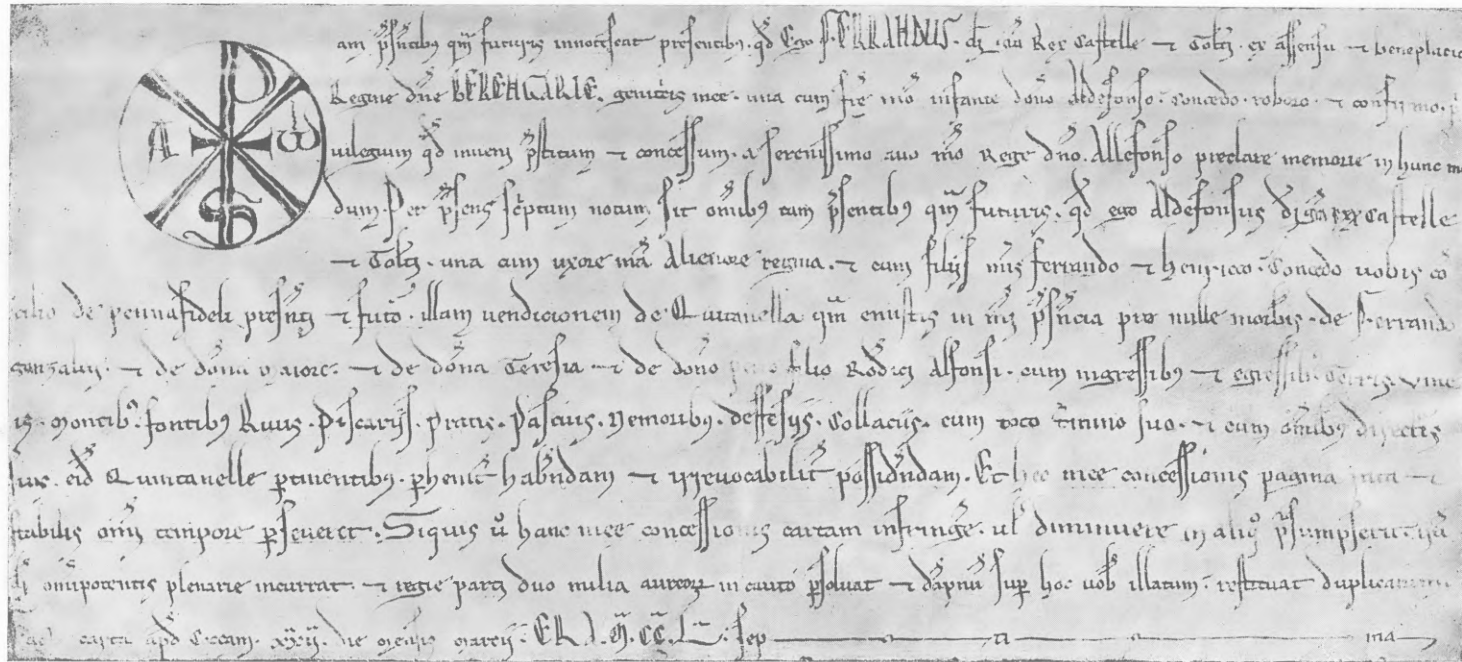 am p̃sentibus qm̃ futuris innotescat presentibus. qd̃ Ego F. FERRANDUS. dei gr̃a Rex Castelle ⁊ Tolti. ex assensu ⁊ beneplacito
Regine dñe BERENGARIE. genitricis mee. una cum fr̃e mõ infante dõno Aldefonso. Concedo. roboro. ⁊ confirmo. p
uilegium qd̃ inueni p̃stitum ⁊ concessum. a serenissimo auo mõ Rege dñõ. Allefonso preclare memorie in hunc mo
dum. Per p̃sens sc̃ptum notum sit omĩbꝰ tam p̃sentibꝰ qm̃ futuris. qd̃ ego Aldefonsus di gr̃a rex Castelle
⁊ Tolti. una cum uxore mã Alienore regina. ⁊ cum filijs mis ferrando ⁊ henrico. Concedo uobis cõ
cilio de pennafideli presenti ⁊ futõ. illam uendicionem de Quintanella qm̃ emistis in mi p̃sencia pro mille morbis. de Ferrando
gunzaluj. ⁊ de dõna maiore. ⁊ de dõna Teresia ⁊ de dõno filio Rodici Alfonsi. cum ingressibus ⁊ egressibꝰ. Terris. vine
is. Montibꝰ. fontibꝰ Riuis. Piscarijs. Pratis. Pascuis. Nemoribꝰ. deffesijs. Collacijs. cum toto t̃mino suo. ⁊ cum omĩbꝰ directis
suis. eid̃ Quintanelle ꝑtinentibꝰ. ꝑhenit̃ hab̃ndam ⁊ irreuocabilit̃ possid̃ndam. Et hec mee concessionis pagina rata ⁊
stabilis omĩ tempore ꝑseueret. Siquis ũ hanc mee concessionis cartam infringe. ul̃ diminuere in aliqͦ p̃sumpserit. irã
di omĩpotentis plenarie incurrat. ⁊ regie parti duo milia aureoꝝ in cauto ꝑsoluat ⁊ dãpnũ suꝑ hoc uob̃ illatum. restituat duplicatum
carta apd̃ Concam. die mensis marcij. ERA. M̃. CC̃. L̃. sep ti ma
A ω
S